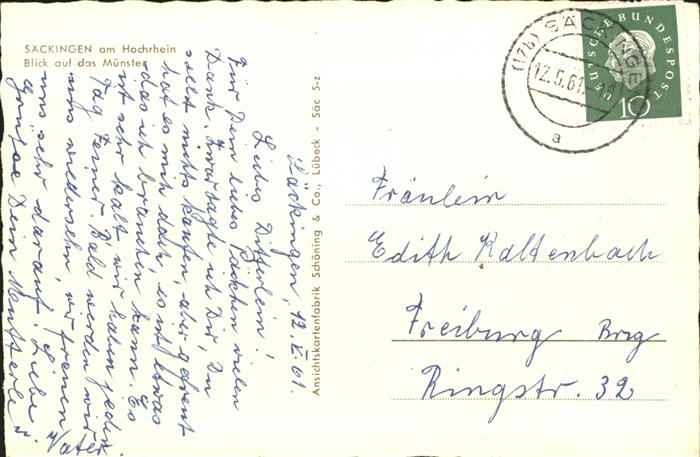 SÄCKINGEN am Hochrhein
Blick auf das Münster
Säckingen, 12. V. 61.
Liebes Ditterlein!
Für Dein liebes Päckchen vielen
Dank. Zwar sagte ich Dir, Du
sollst nichts kaufen, aber gefreut
hat es mich doch, es ist etwas
das ich brauchen kann. Es
ist sehr kalt, wir haben jeden
Tag Feuer. Bald werden wir
uns wiedersehn, wir freuen
uns sehr darauf. Liebe
Grüße Dein Mutterle u.
Vater.
Ansichtskartenfabrik Schöning & Co., Lübeck - Säc 5-z
(17b) SÄCKINGEN
12.5.61
a
DEUTSCHE BUNDESPOST
10
Fräulein
Edith Kaltenbach
Freiburg Brsg
Ringstr. 32